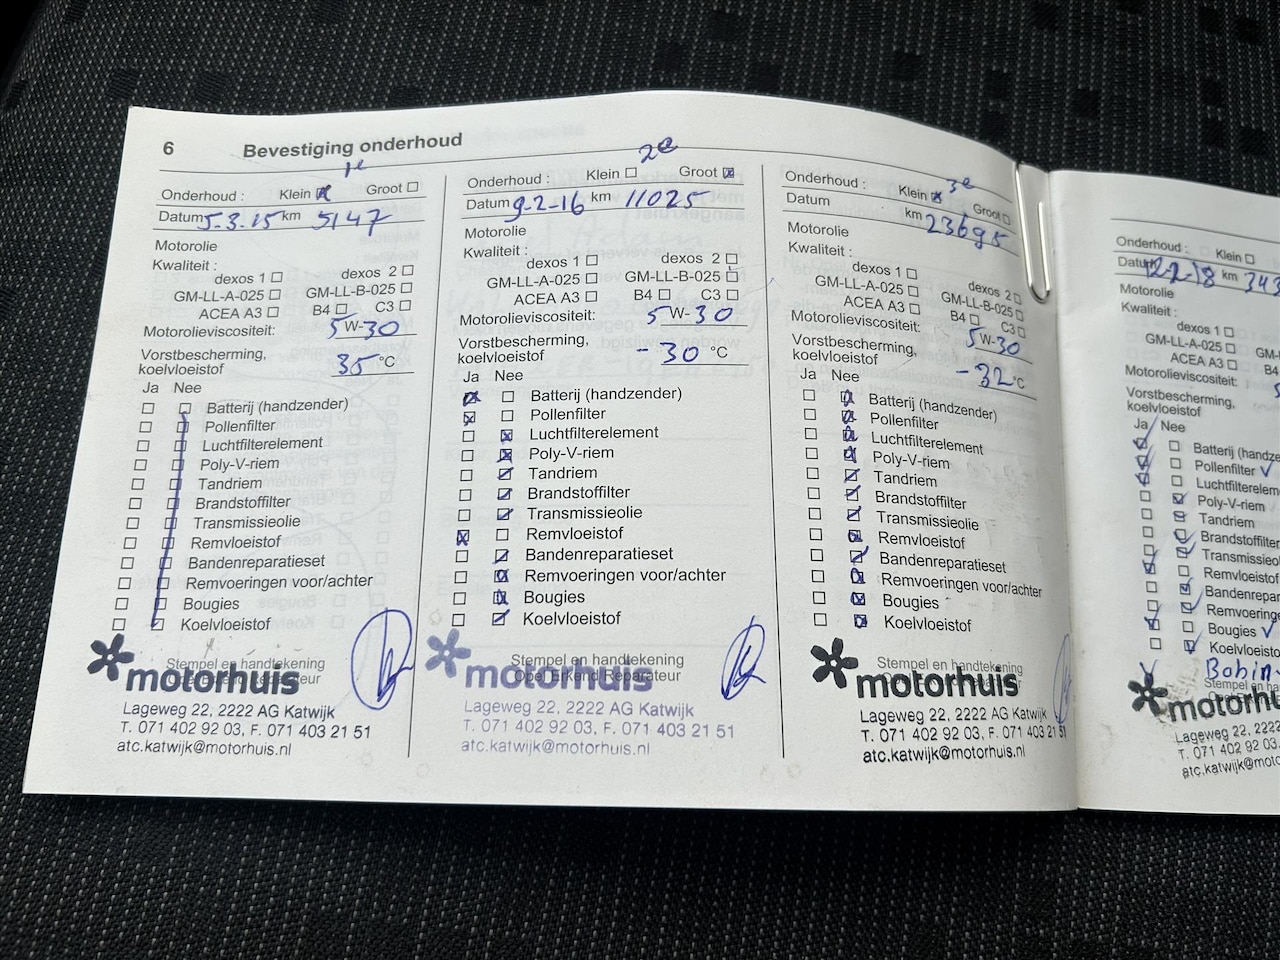 6 Bevestiging onderhoud
1e
Onderhoud : Klein Groot
Datum 5.3.15 km 5147
Motorolie
Kwaliteit :
dexos 1 dexos 2
GM-LL-A-025 GM-LL-B-025
ACEA A3 B4 C3
Motorolieviscositeit: 5 W-30
Vorstbescherming,
koelvloeistof 35 °C
Ja Nee
Batterij (handzender)
Pollenfilter
Luchtfilterelement
Poly-V-riem
Tandriem
Brandstoffilter
Transmissieolie
Remvloeistof
Bandenreparatieset
Remvoeringen voor/achter
Bougies
Koelvloeistof
Stempel en handtekening
Opel Erkend Reparateur
motorhuis
Lageweg 22, 2222 AG Katwijk
T. 071 402 92 03, F. 071 403 21 51
atc.katwijk@motorhuis.nl
2e
Onderhoud : Klein Groot
Datum 9-2-16 km 11025
Motorolie
Kwaliteit :
dexos 1 dexos 2
GM-LL-A-025 GM-LL-B-025
ACEA A3 B4 C3
Motorolieviscositeit: 5 W-30
Vorstbescherming,
koelvloeistof -30 °C
Ja Nee
Batterij (handzender)
Pollenfilter
Luchtfilterelement
Poly-V-riem
Tandriem
Brandstoffilter
Transmissieolie
Remvloeistof
Bandenreparatieset
Remvoeringen voor/achter
Bougies
Koelvloeistof
Stempel en handtekening
Opel Erkend Reparateur
motorhuis
Lageweg 22, 2222 AG Katwijk
T. 071 402 92 03, F. 071 403 21 51
atc.katwijk@motorhuis.nl
3e
Onderhoud : Klein Groot
Datum km 23695
Motorolie
Kwaliteit :
dexos 1 dexos 2
GM-LL-A-025 GM-LL-B-025
ACEA A3 B4 C3
Motorolieviscositeit: 5 W-30
Vorstbescherming,
koelvloeistof -32 °C
Ja Nee
Batterij (handzender)
Pollenfilter
Luchtfilterelement
Poly-V-riem
Tandriem
Brandstoffilter
Transmissieolie
Remvloeistof
Bandenreparatieset
Remvoeringen voor/achter
Bougies
Koelvloeistof
Stempel en handtekening
motorhuis
Lageweg 22, 2222 AG Katwijk
T. 071 402 92 03, F. 071 403 21 51
atc.katwijk@motorhuis.nl
Onderhoud : Klein
Datum 12-2-18 km 343
Motorolie
Kwaliteit :
dexos 1
GM-LL-A-025 GM-
ACEA A3 B4
Motorolieviscositeit: 5
Vorstbescherming,
koelvloeistof
Ja Nee
Batterij (handze
Pollenfilter
Luchtfilterelem
Poly-V-riem
Tandriem
Brandstoffilter
Transmissieo
Remvloeistof
Bandenrepar
Remvoeringe
Bougies
Koelvloeisto
Bobin
Stempel en ha
motorhu
Lageweg 22, 2222
T. 071 402 92 03,
atc.katwijk@moto